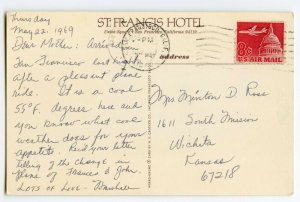 Thursday
May 22, 1969
ST. FRANCIS HOTEL
Union Square • San Francisco, California 94119
Dear Mother: Arrived in
San Francisco last night
after a pleasant plane
ride. It is a cool
55°F. degrees here and
you know what cool
weather does for your
appetite. Rec'd your letter
telling of the change in
plane of Frances & John.
LOTS OF Love -
address
PM
MAY
8¢
U.S AIR MAIL
Mrs Minton D Rose
1611 South Mission
Wichita
Kansas
67218